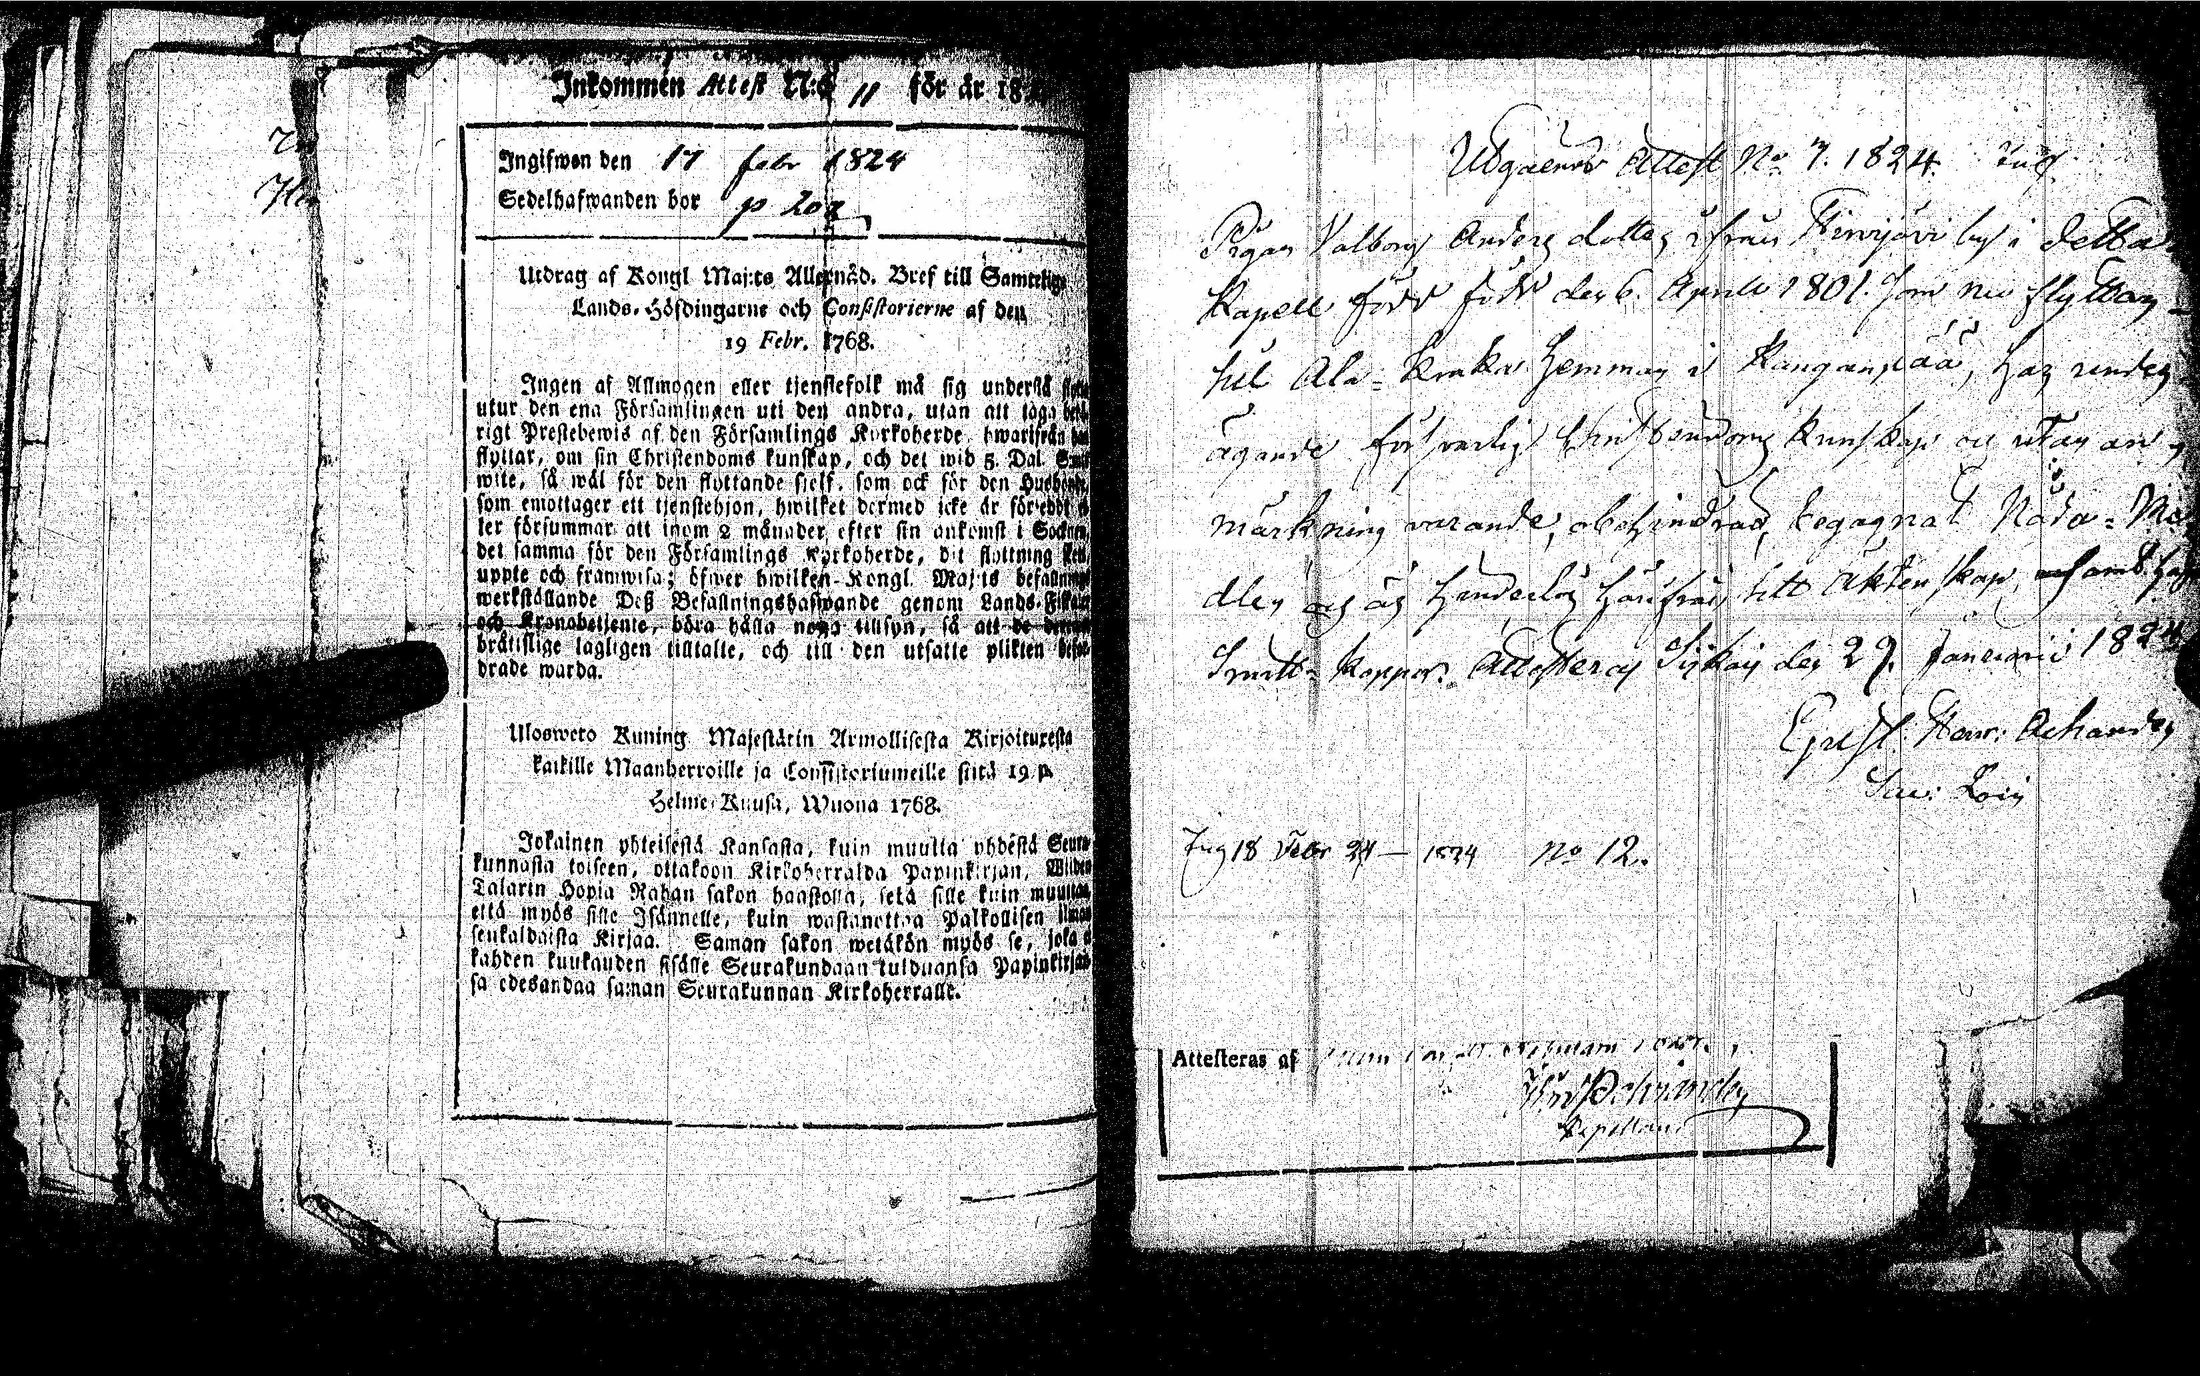 Inkommen Attest N:o 11 för år 18
Ingifwen den 17 febr 1824
Sedelhafwanden bor p 202
Utdrag af Kongl Maj:ts Allernåd. Bref till Samtelige
Lands-Höfdingarne och Consistorierne af den
19 Febr. 1768.
Ingen af Allmogen eller tjenstefolk må sig understå
utur den ena Församlingen uti den andra, utan att taga
rigt Prestebewis af den Församlings Kyrkoherde, hwarifrån
flyttar, om sin Christendoms kunskap, och det wid 5. Dal.
wite, så wäl för den flyttande sjelf, som ock för den Husbonde,
som emottager ett tjenstehjon, hwilket dermed icke är försedt
ler försummar att inom 2 månader efter sin ankomst i Socknen,
det samma för den Församlings Kyrkoherde, dit flyttning
uppte och framwisa; öfwer hwilken Kongl. Maj:ts befallning
werkställande Deß Befallningshafwande genom Lands-Fiskaler
och Kronobetjente, böra hålla noga tillsyn, så att de
bråttslige lagligen tilltalte, och till den utsatte plikten
drade warda.
Ulosweto Kuning. Majestätin Armollisesta Kirjoituxesta
kaikille Maanherroille ja Consistoriumeille siitä 19 p.
Helme-Kuusa, Wuona 1768.
Jokainen yhteisestä Kansasta, kuin muutta yhdestä Seura
kunnasta toiseen, ottakoon Kirkoherralda Papinkirjan, Wiiden
Talarin Hopia Rahan sakon haastolla, sekä sille kuin muuttaa
että myös sille Isännelle, kuin wastanottaa Palkollisen ilman
senkaldaista Kirjaa. Saman sakon wetäkön myös se, joka
kahden kuukauden sisälle Seurakundaan tulduansa Papinkirjan
sa edesandaa saman Seurakunnan Kirkoherralle.
Utgående Attest No 7. 1824.
Pigan Valborg Anders dotter ifrån Hirvijärvi by i detta
Kapell född den 6. Aprill 1801. som nu flyttar
till Ala-Kraka Hemman i Kangan
ägande försvarlig Christendoms kunskap och utan an
märkning varande, obehindrad, begagnat Nåda-Me
dlen och är hinderlös härifrån till Äktenskap, samt haft
Smitt-Koppor. Attesteras den 29. Januarii 1824
Henr:
No 12.
Attesteras af